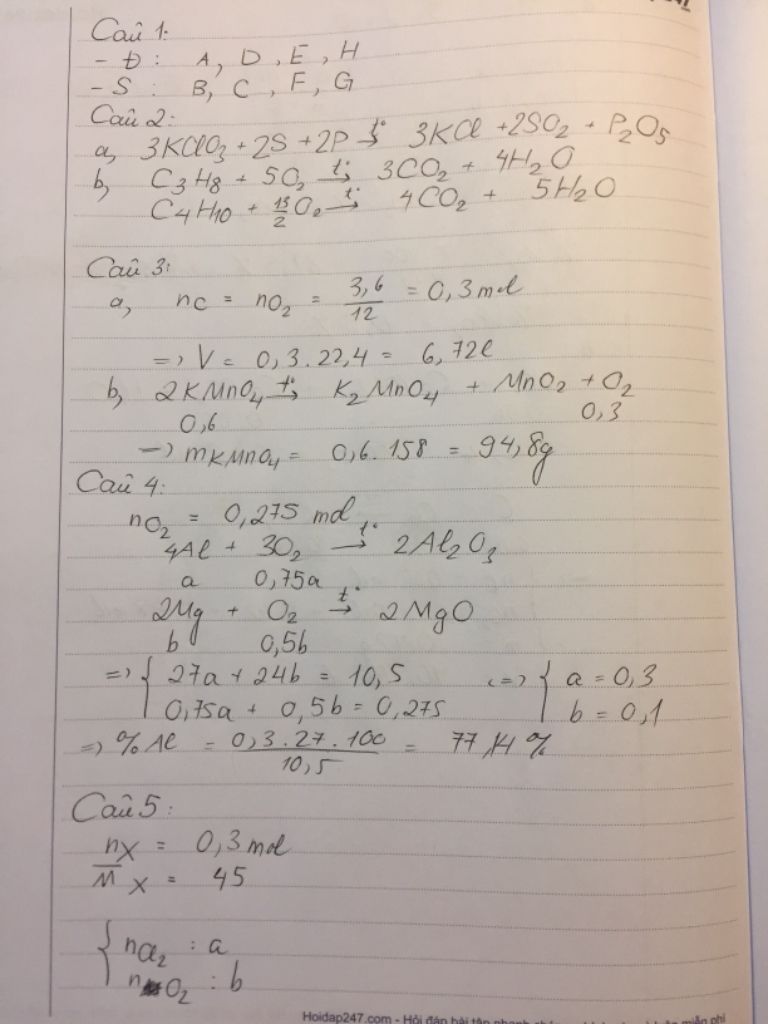 Câu 1:
- Đ : A, D, E, H
- S : B, C, F, G
Câu 2:
a, 3KClO3 + 2S + 2P →t° 3KCl + 2SO2 + P2O5
b, C3H8 + 5O2 →t° 3CO2 + 4H2O
C4H10 + 13/2 O2 →t° 4CO2 + 5H2O
Câu 3:
a, nC = nO2 = 3,6/12 = 0,3 mol
=> V = 0,3 . 22,4 = 6,72l
b, 2KMnO4 →t° K2MnO4 + MnO2 + O2
0,6 0,3
-> mKMnO4 = 0,6 . 158 = 94,8g
Câu 4:
nO2 = 0,275 mol
4Al + 3O2 →t° 2Al2O3
a 0,75a
2Mg + O2 →t° 2MgO
b 0,5b
=> { 27a + 24b = 10,5 <=> { a = 0,3
0,75a + 0,5b = 0,275 b = 0,1
=> % Al = 0,3 . 27 . 100 / 10,5 = 77,14 %
Câu 5:
nX = 0,3 mol
M̅X = 45
{ nCl2 : a
nO2 : b
Hoidap247.com - Hỏi đáp bài tập nhanh miễn phí